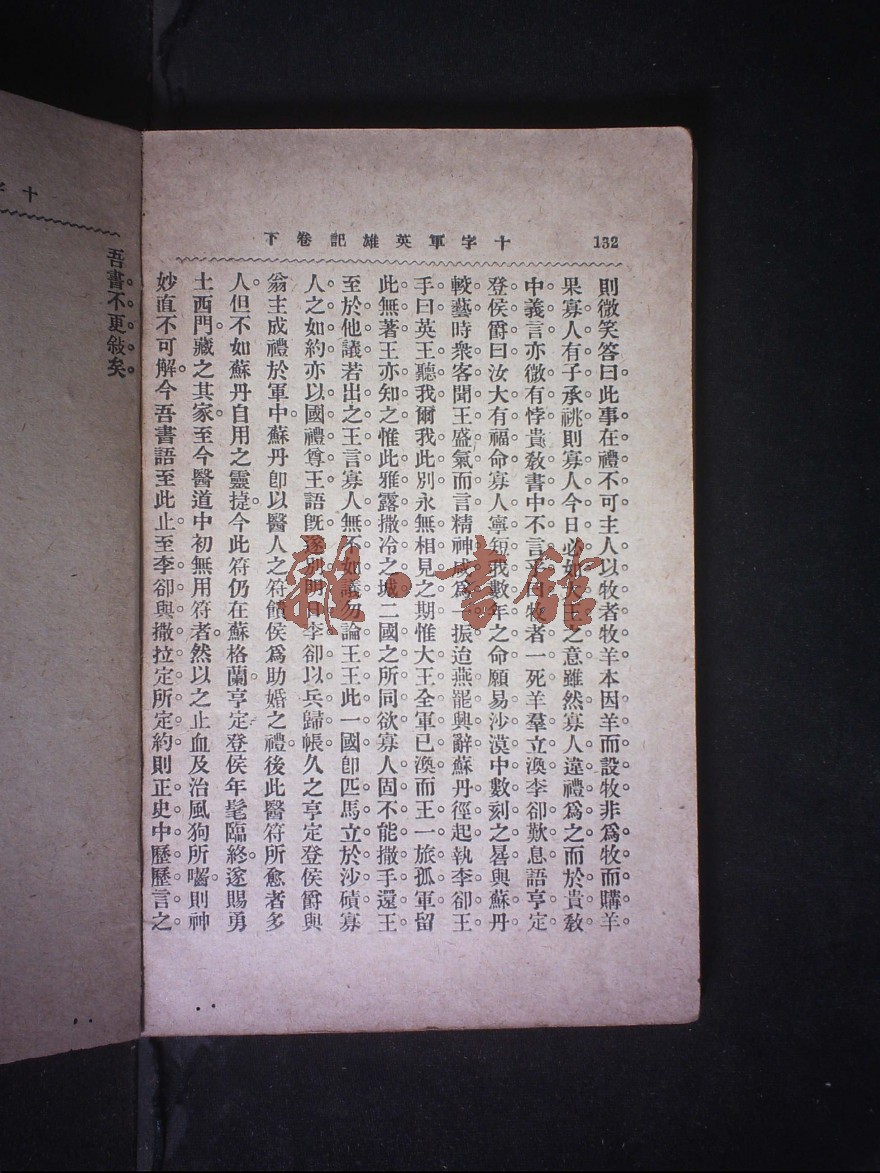 132
十字軍英雄記卷下
則微笑答曰此事在禮不可主人以牧者牧羊本因羊而設牧非爲牧而購羊
果寡人有子承祧則寡人今日必如大王之意雖然寡人違禮爲之而於貴教
中義言亦微有悖貴教書中不言乎曰牧者一死羊羣立渙李卻歎息語亨定
登侯爵曰汝大有福命寡人寧短我數年之命願易沙漠中數刻之晷與蘇丹
較藝時衆客聞王盛氣而言精神咸爲一振迨燕罷興辭蘇丹徑起執李卻王
手曰英王聽我爾我此別永無相見之期惟大王全軍已渙而王一旅孤軍留
此無著王亦知之惟此雅露撒冷之城二國之所同欲寡人固不能撒手還王
至於他議若出之王言寡人無不如議勿論王王此一國卽匹馬立於沙磧寡
人之如約亦以國禮尊王語旣遂別明日李卻以兵歸帳久之亨定登侯爵與
翁主成禮於軍中蘇丹卽以醫人之符饋侯爲助婚之禮後此醫符所愈者多
人但不如蘇丹自用之靈捷今此符仍在蘇格蘭亨定登侯年髦臨終遂賜勇
士西門藏之其家至今醫道中初無用符者然以之止血及治風狗所囓則神
妙直不可解今吾書語至此止至李卻與撒拉定所定約則正史中歷歷言之
十字
吾書不更敍矣
雜·書館